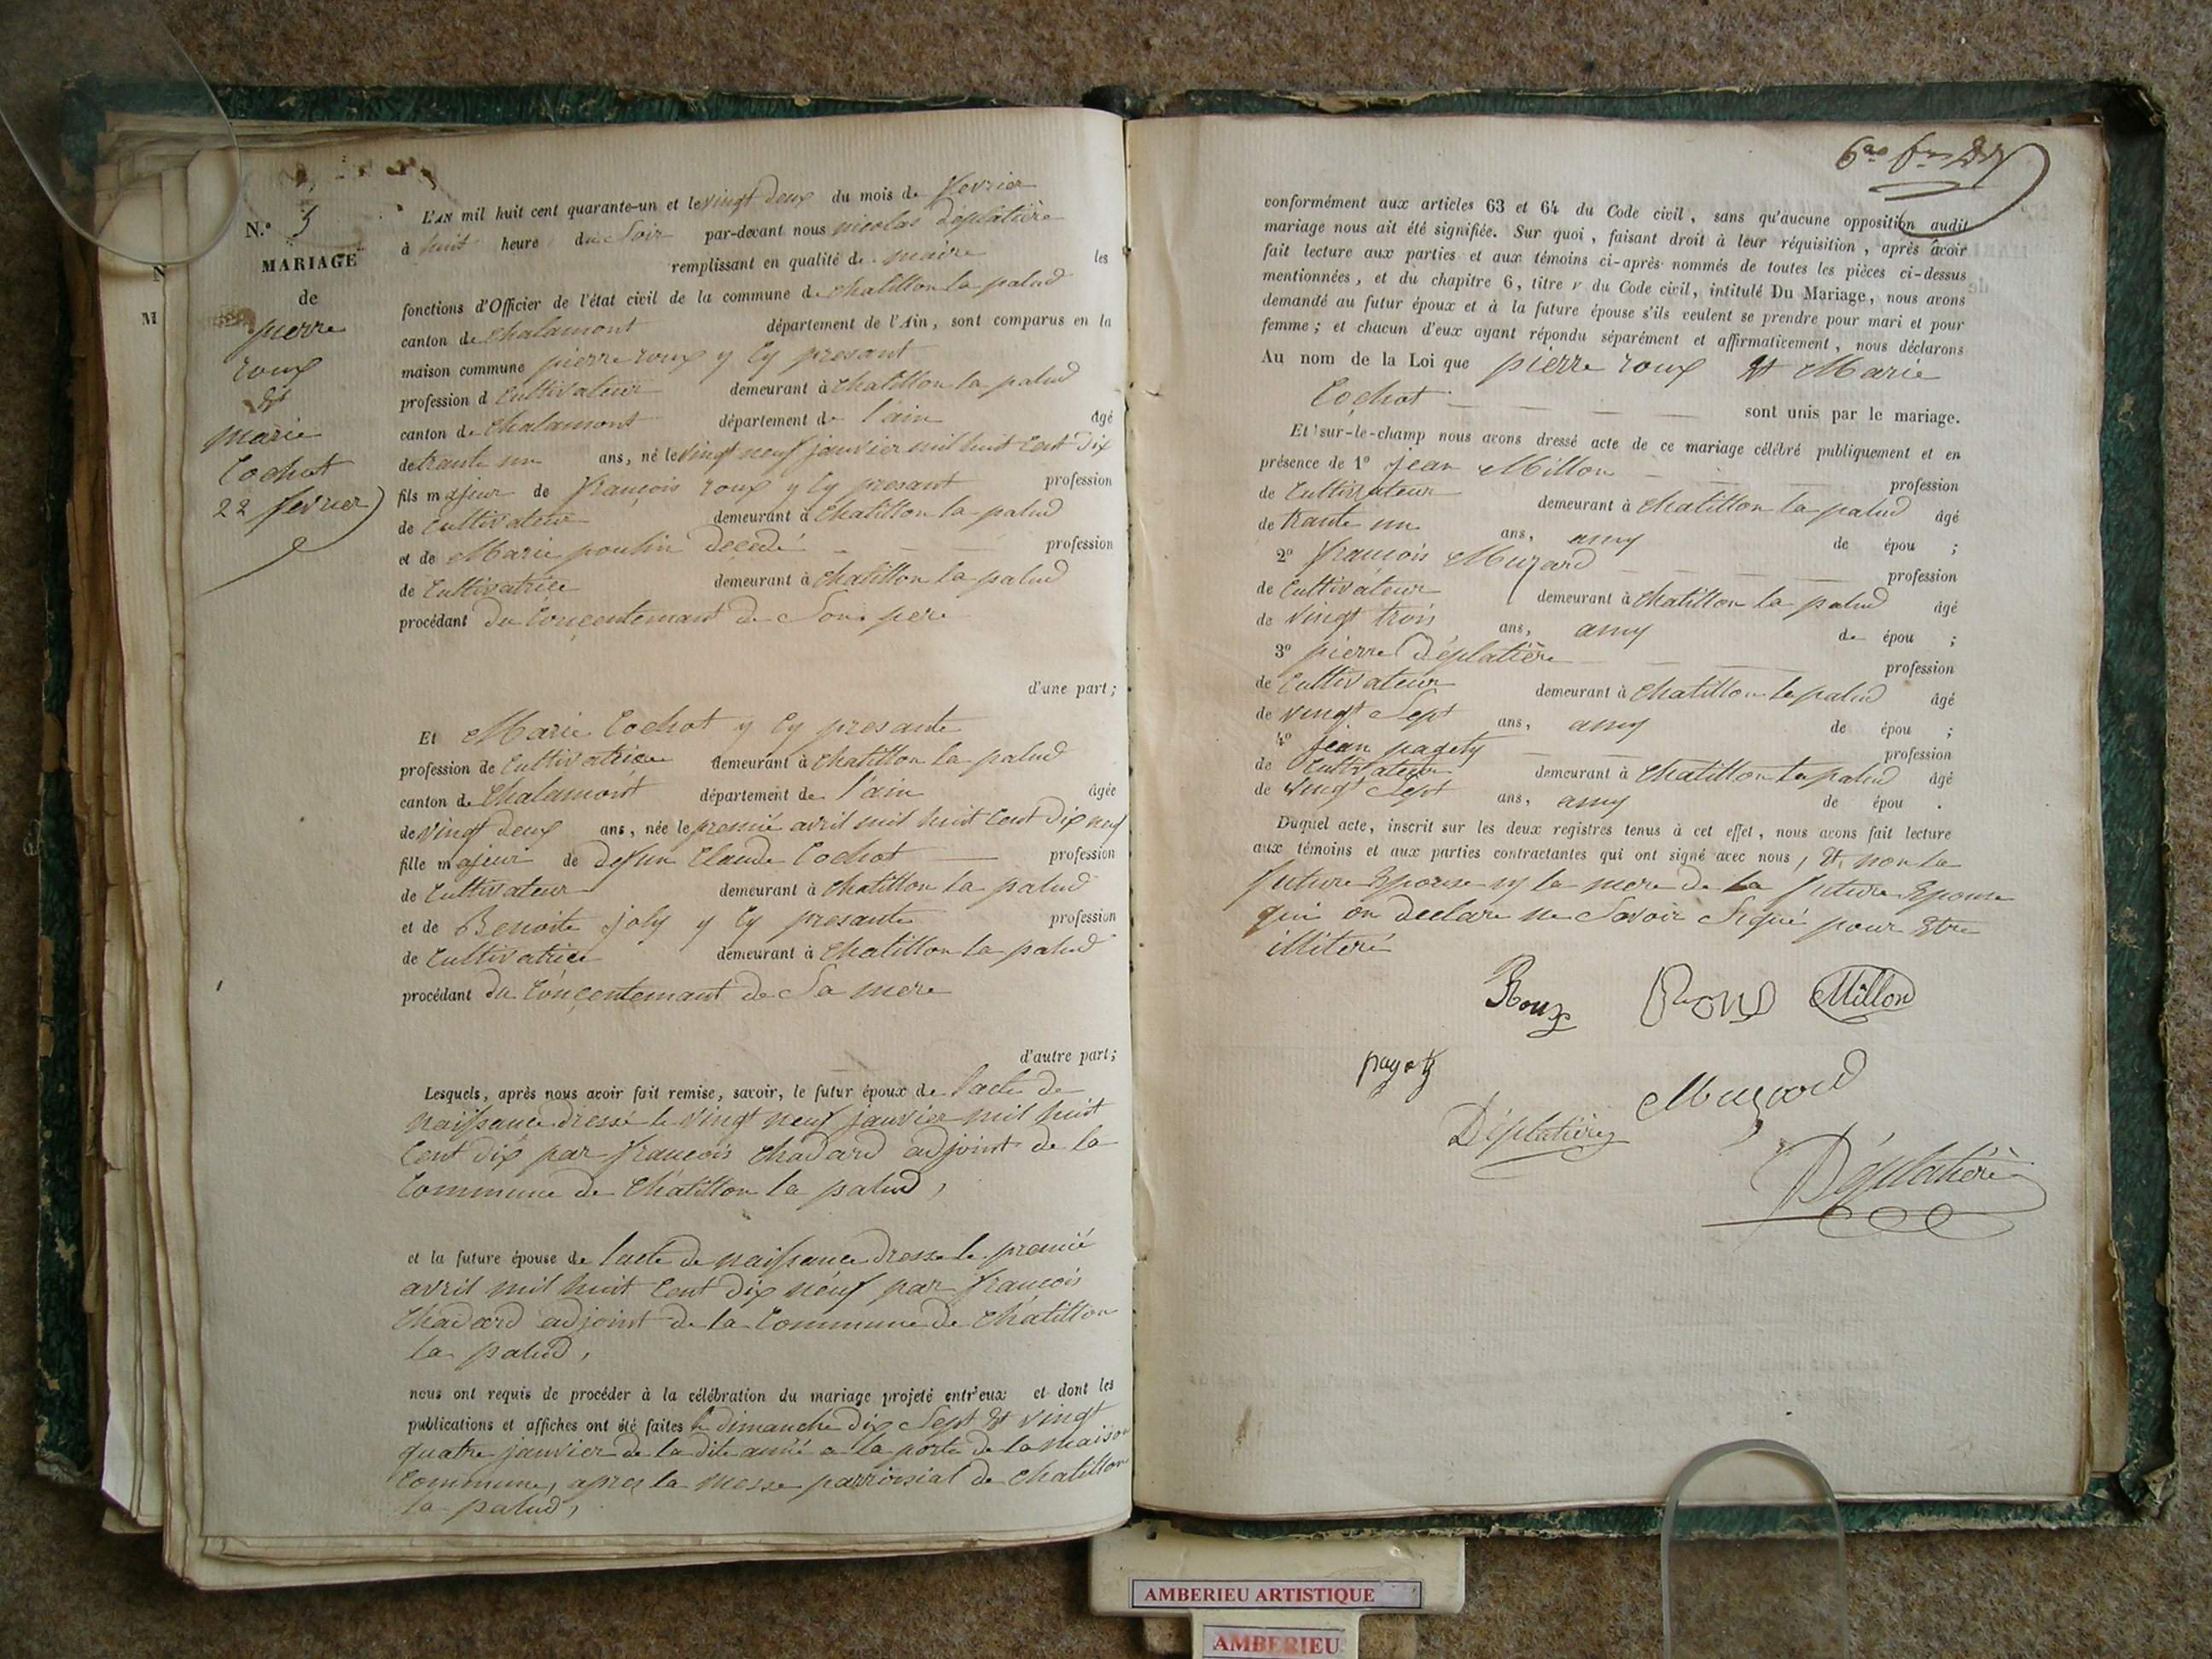 N.º 5
MARIAGE
de
pierre
roux
et
marie
Cochat
22 fevrier
L'AN mil huit cent quarante-un et le vingt deux du mois de fevrier
à huit heure du Soir par-devant nous nicolas Déplatière
remplissant en qualité de maire les
fonctions d'Officier de l'état civil de la commune de chatillon la palud
canton de Chalamont département de l'Ain, sont comparus en la
maison commune pierre roux y Cy presant
profession d Cultivateur demeurant à chatillon la palud
canton de Chalamont département de l'ain âgé
de trante un ans, né le vingt neuf janvier mil huit Cent Dix
fils majeur de françois roux y Cy presant profession
de Cultivateur demeurant à Chatillon la palud
et de Marie poulin Decedé profession
de Cultivatrice demeurant à Chatillon la palud
procédant du Conçentemant de Son pere
d'une part;
Et Marie Cochat y Cy presante
profession de Cultivatrice demeurant à Chatillon la palud
canton de Chalamont département de l'ain âgée
de vingt deux ans, née le premié avril mil huit Cent Dix neuf
fille majeur de defun Claude Cochat profession
de Cultivateur demeurant à Chatillon la palud
et de Benoite joly y Cy presante profession
de Cultivatrice demeurant à Chatillon la palud
procédant du Conçentemant de Sa mere
d'autre part;
Lesquels, après nous avoir fait remise, savoir, le futur époux de l'acte de
naissance dressé le vingt neuf janvier mil huit
Cent dix par françois Chadard adjoint de la
Commune de Chatillon la palud,
et la future épouse de lacte de naissance dresse le premié
avril mil huit Cent Dix neuf par françois
Chadard adjoint de la Commune de Chatillon
la palud,
nous ont requis de procéder à la célébration du mariage projeté entr'eux et dont les
publications et affiches ont été faites le dimanche dix Sept et vingt
quatre janvier de la dite année a la porte de la maison
Commune, apres la messe parroisial de Chatillon
la palud,
conformément aux articles 63 et 64 du Code civil, sans qu'aucune opposition audit
mariage nous ait été signifiée. Sur quoi, faisant droit à leur réquisition, après avoir
fait lecture aux parties et aux témoins ci-après nommés de toutes les pièces ci-dessus
mentionnées, et du chapitre 6, titre v du Code civil, intitulé Du Mariage, nous avons
demandé au futur époux et à la future épouse s'ils veulent se prendre pour mari et pour
femme; et chacun d'eux ayant répondu séparément et affirmativement, nous déclarons
Au nom de la Loi que pierre roux et Marie
Cochat sont unis par le mariage.
Et sur-le-champ nous avons dressé acte de ce mariage célébré publiquement et en
présence de 1º jean Millon profession
de Cultivateur demeurant à Chatillon la palud âgé
de trante un ans, amy de épou ;
2º françois Muzard profession
de Cultivateur demeurant à Chatillon la palud âgé
de vingt trois ans, amy de épou ;
3º pierre Déplatière profession
de Cultivateur demeurant à Chatillon la palud âgé
de vingt Sept ans, amy de épou ;
4º jean pagety profession
de Cultivateur demeurant à Chatillon la palud âgé
de vingt Sept ans, amy de épou .
Duquel acte, inscrit sur les deux registres tenus à cet effet, nous avons fait lecture
aux témoins et aux parties contractantes qui ont signé avec nous, et non la
future Epouse ny la mere de la future Epouse
qui on declare ne Savoir Signé pour Etre
illiteré
Roux Roux Millon
Muzard
Déplatière
Déplatière
AMBERIEU ARTISTIQUE
AMBERIEU